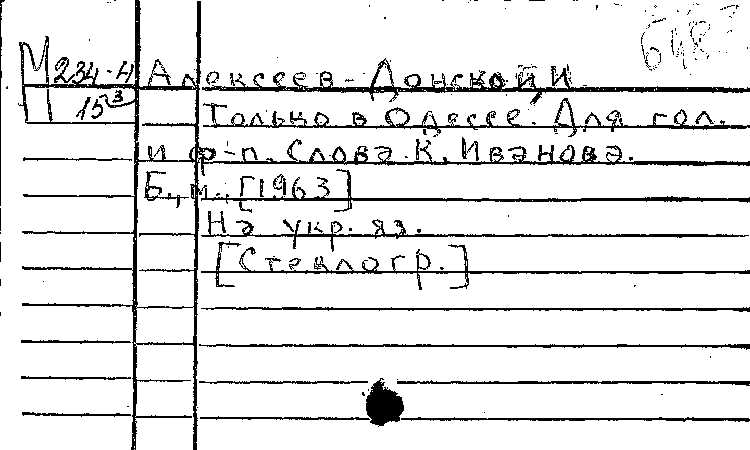 М 234-4 Алексеев-Донской, И
15³ Только в Одессе. Для гол.
и ф-п. Слова К. Иванова.
Б., м., [1963]
На укр. яз.
[Стеклогр.]